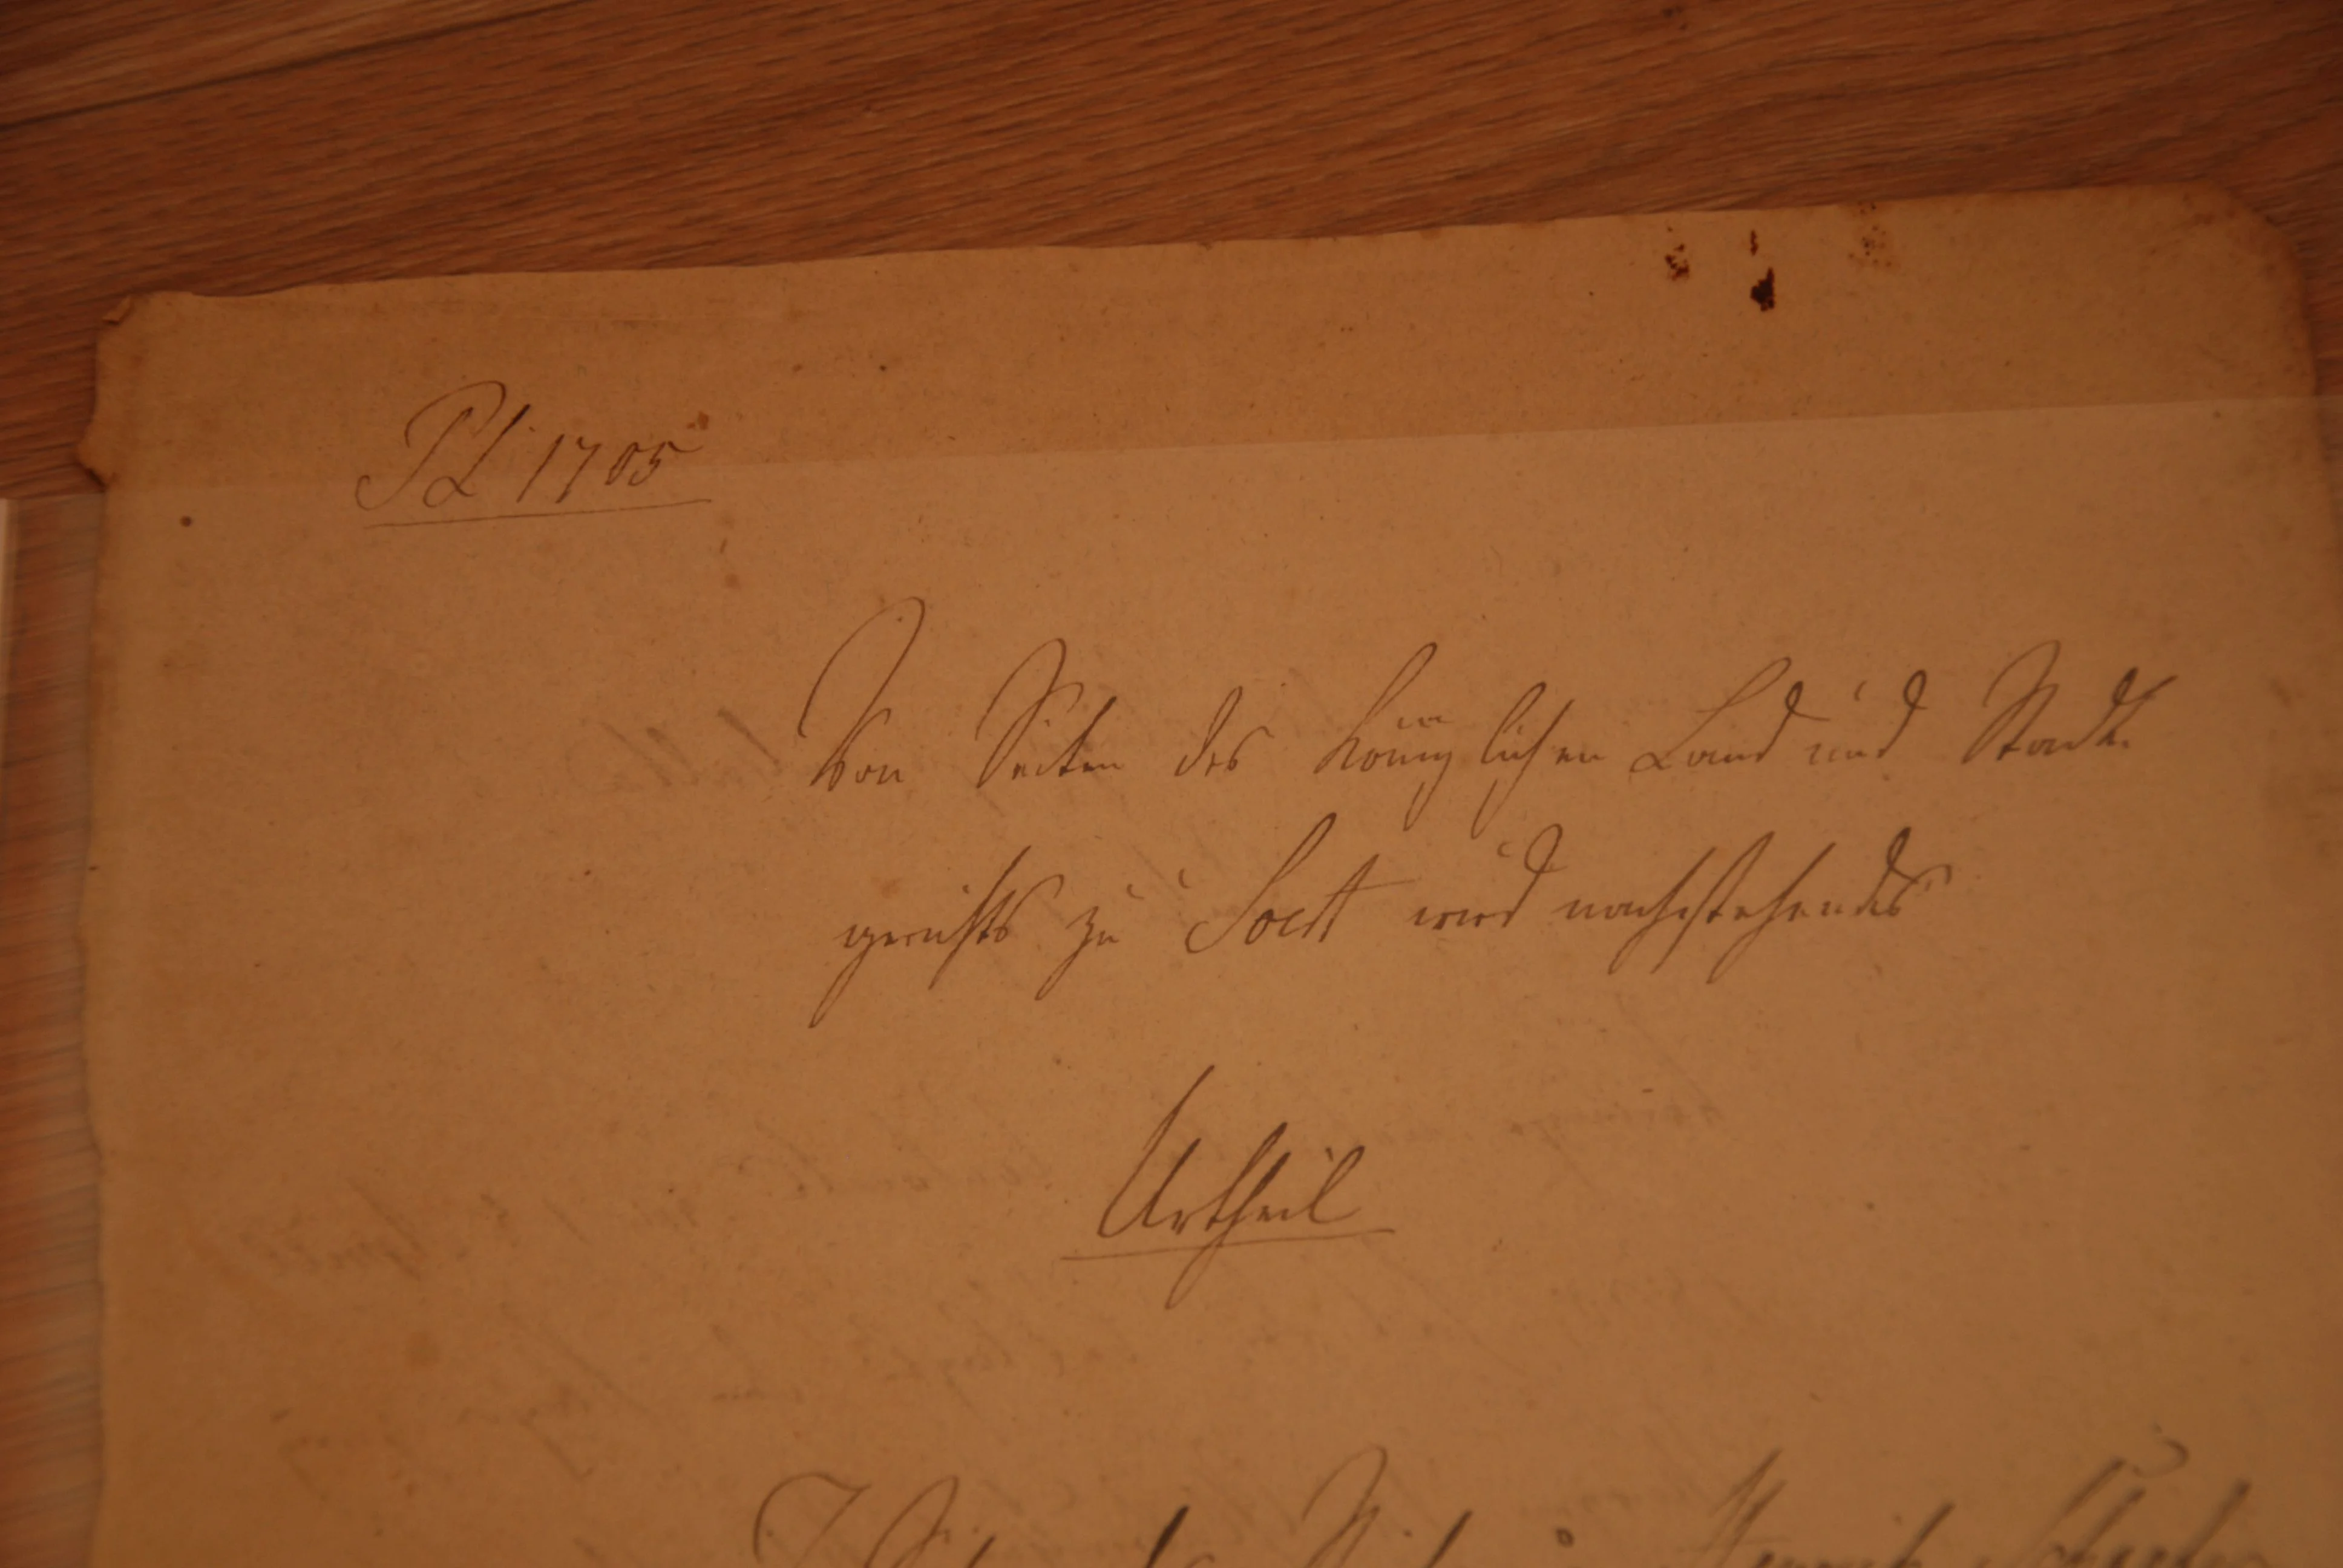 Pl 1705
Von Seiten des Königlichen Land und Stadt-
gerichts zu Soest wird nachstehendes
Urtheil